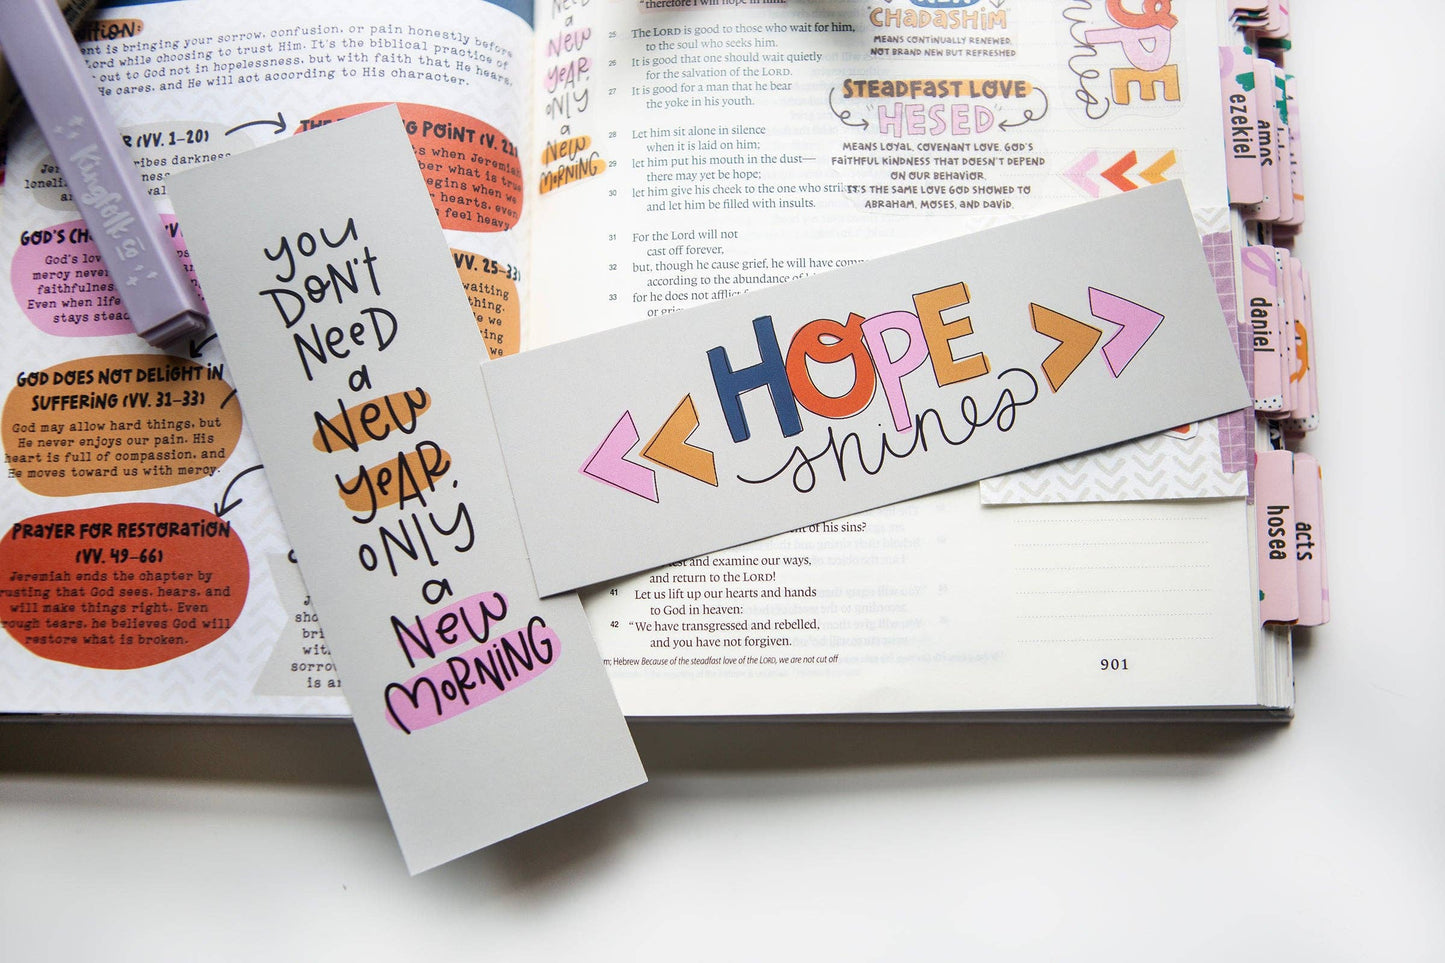 ent is bringing your sorrow, confusion, or pain honestly before
Lord while choosing to trust Him. It's the biblical practice of
out to God not in hopelessness, but with faith that He hears,
He cares, and He will act according to His character.
(VV. 1-20)
THE
NG POINT (V. 21)
ribes darkness
s when Jeremiah
ber what is true
egins when we
hearts, even
feel heavy.
GOD'S CH
God's lov
mercy never
faithfulness
Even when life
stays stead
VV. 25-33)
waiting
thing.
we
GOD DOES NOT DELIGHT IN
SUFFERING (VV. 31-33)
God may allow hard things, but
He never enjoys our pain. His
heart is full of compassion, and
He moves toward us with mercy.
PRAYER FOR RESTORATION
(VV. 49-66)
Jeremiah ends the chapter by
rusting that God sees, hears, and
will make things right. Even
rough tears, he believes God will
restore what is broken.
Kingfolk co
YOU
DON'T
NEED
a
NEW
YEAR.
ONLY
a
NEW
MORNING
NEED
a
NEW
YEAR.
ONLY
a
NEW
MORNING
"therefore I will hope in him."
25 The LORD is good to those who wait for him,
to the soul who seeks him.
26 It is good that one should wait quietly
for the salvation of the LORD.
27 It is good for a man that he bear
the yoke in his youth.
28 Let him sit alone in silence
when it is laid on him;
29 let him put his mouth in the dust—
there may yet be hope;
30 let him give his cheek to the one who strikes
and let him be filled with insults.
31 For the Lord will not
cast off forever,
32 but, though he cause grief, he will have comp
according to the abundance of
33 for he does not afflict f
or gri
NEW
"CHADASHIM"
MEANS CONTINUALLY RENEWED,
NOT BRAND NEW BUT REFRESHED
STEADFAST LOVE
"HESED"
MEANS LOYAL, COVENANT LOVE. GOD'S
FAITHFUL KINDNESS THAT DOESN'T DEPEND
ON OUR BEHAVIOR.
IT'S THE SAME LOVE GOD SHOWED TO
ABRAHAM, MOSES, AND DAVID.
HOPE
shines
HOPE
shines
of his sins?
and examine our ways,
and return to the LORD!
41 Let us lift up our hearts and hands
to God in heaven:
42 "We have transgressed and rebelled,
and you have not forgiven.
m; Hebrew Because of the steadfast love of the LORD, we are not cut off
901
ezekiel
amos
daniel
hosea
acts